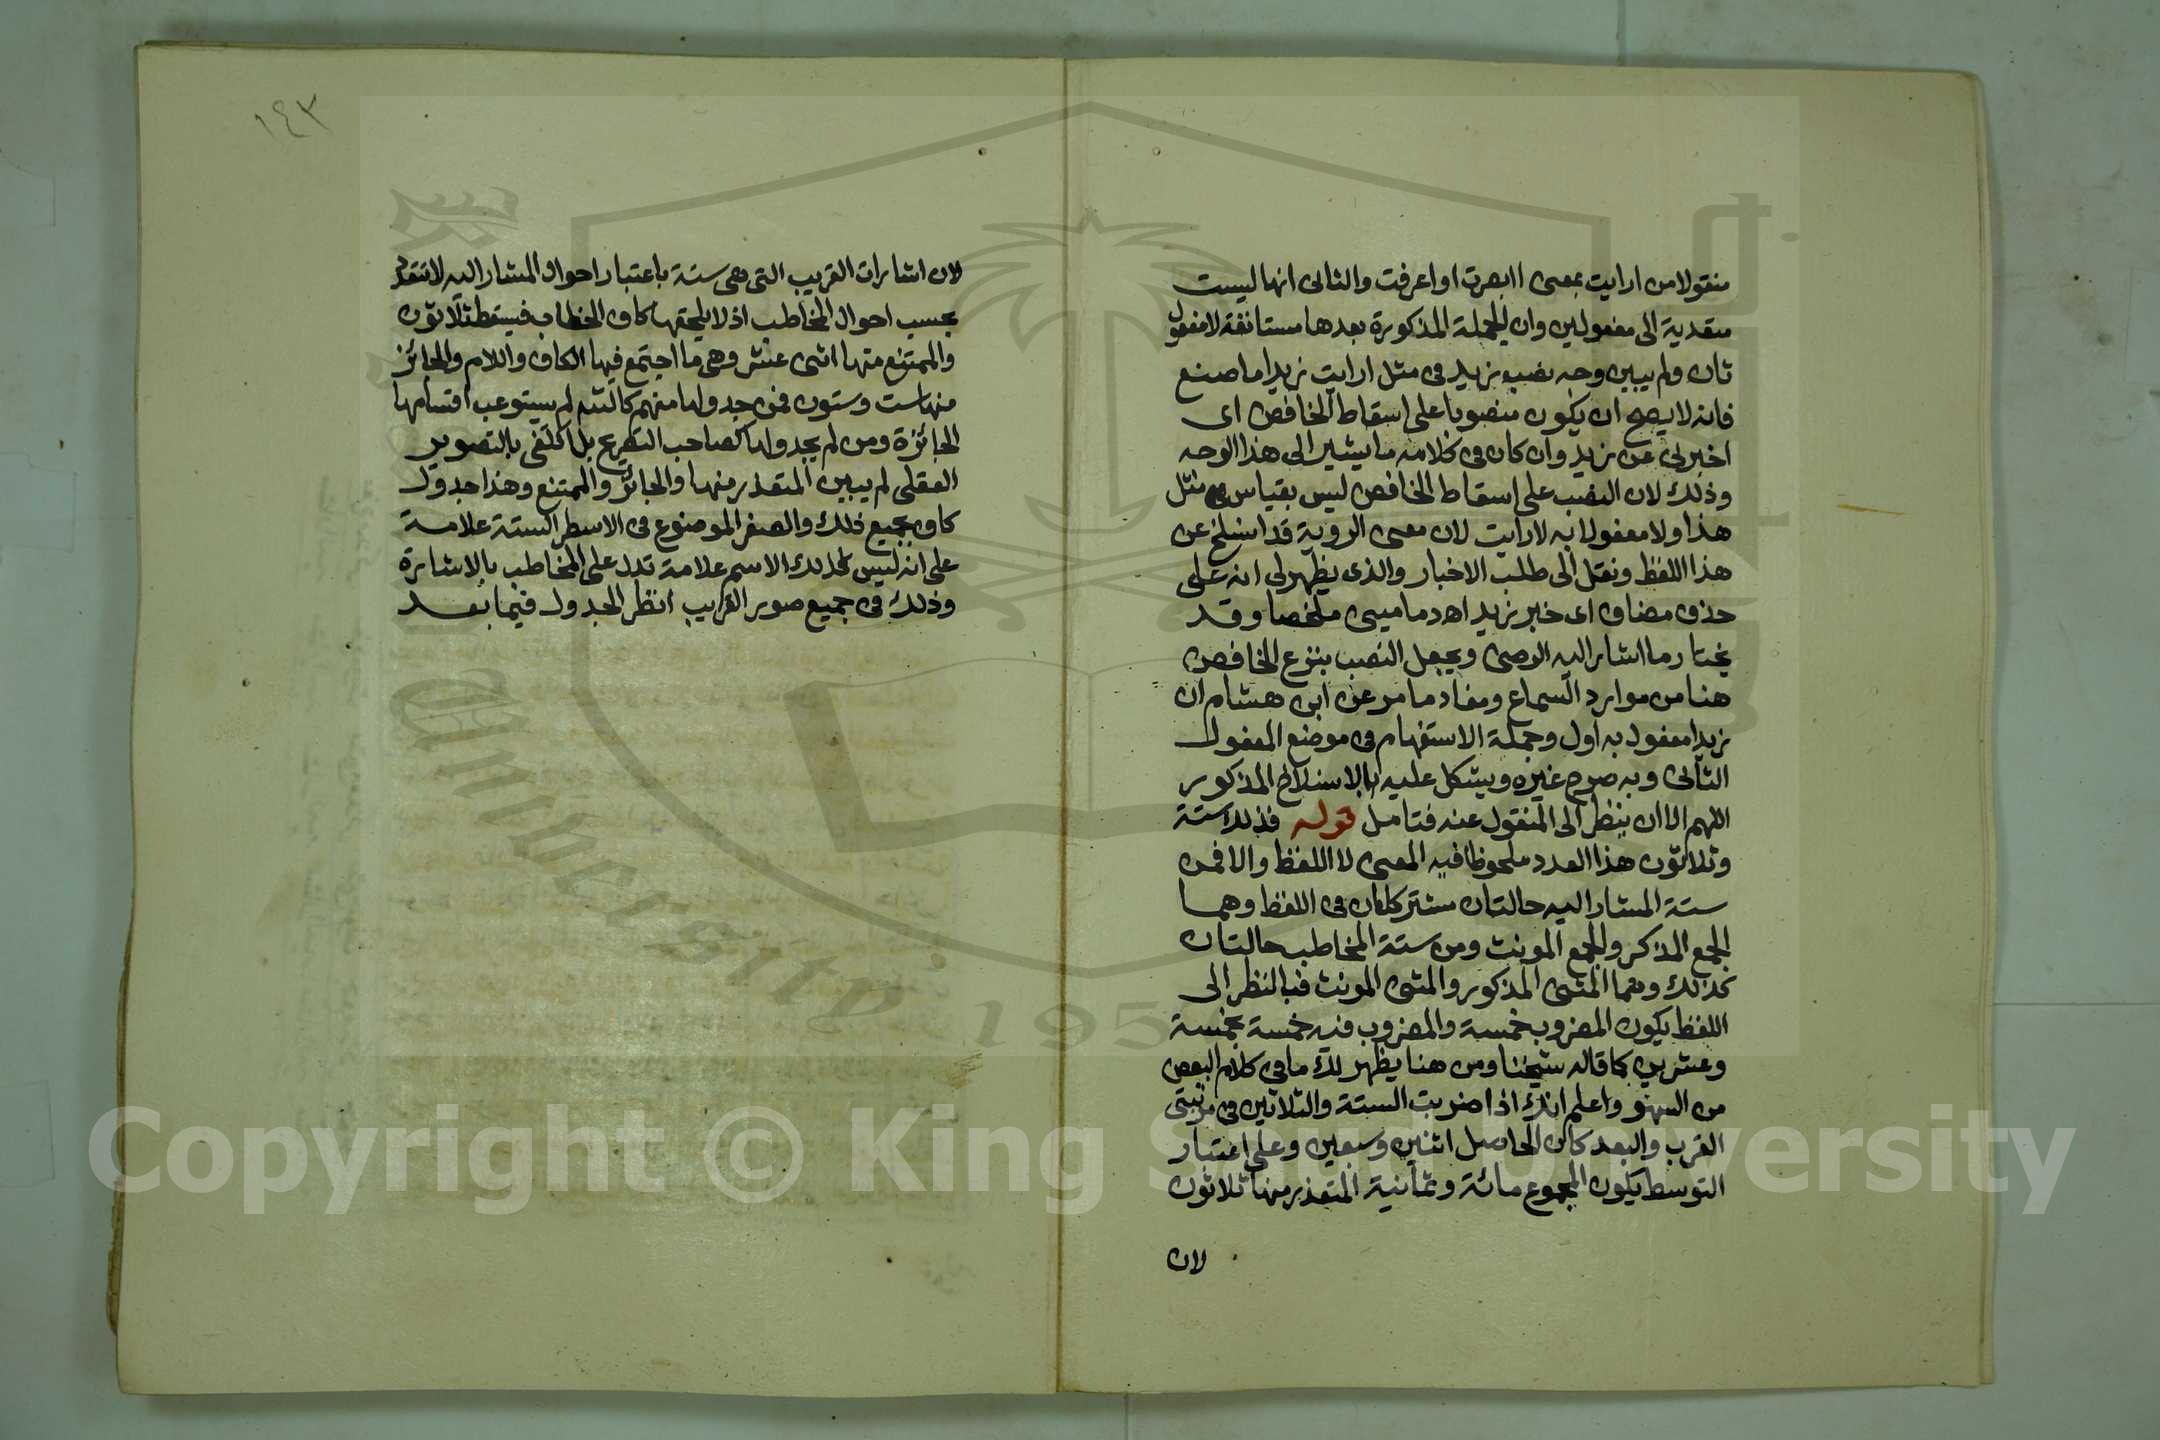 منقولا من ارايت بمعنى اابصرت او اعرفت والثانى انها ليست
متعدية الى مفعولين وان الجملة المذكورة بعدها مستانفة لا مفعول
ثان ولم يبين وجه نصب زيد فى مثل ارايت زيدا ما صنع
فانه لا يصح ان يكون منصوبا على اسقاط الخافض اى
اخبرنى عن زيد وان كان فى كلامه ما يشير الى هذا الوجه
وذلك لان النصب على اسقاط الخافض ليس بقياس فى مثل
هذا ولا مفعولا به لارايت لان معنى الروية قد انسلخ عن
هذا اللفظ ونقل الى طلب الاخبار والذى يظهر لى انه على
حذف مضاف اى خبر زيد اهـ دماميسى ملخصا وقد
يختار ما اشار اليه الرضى ويجعل النصب بنزع الخافض
هنا من موارد السماع ومفاد ما مر عن ابن هشام ان
زيدا مفعول به اول وجملة الاستفهام فى موضع المفعول
الثانى وبه صرح غيره ويشكل عليه بالانسلاخ المذكور
اللهم الا ان ينظر الى المنقول عنه فتامل قوله فذلك ستة
وثلاثون هذا العدد ملحوظا فيه المعنى لا اللفظ والا فمن
ستة المشار اليه حالتان مشتركتان فى اللفظ وهما
الجمع المذكر والجمع المونث ومن ستة المخاطب حالتان
كذلك وهما المثنى المذكور والمثنى المونث فبالنظر الى
اللفظ يكون المضروب خمسة والمضروب فيه خمسة بخمسة
وعشرين كما قاله شيخنا ومن هنا يظهر لك ما فى كلام البعض
من السهو واعلم انك اذا ضربت الستة والثلاثين فى مرتبتى
القرب والبعد كان الحاصل اثنين وسبعين وعلى اعتبار
التوسط يكون المجموع مائة وثمانية المتعذر منها ثلاثون
لان
١٤٣
لان اشارات القريب التى هى ستة باعتبار احوال المشار اليه لا تتعدد
بحسب احوال المخاطب اذ لا يلحقها كاف الخطاب فيسقط ثلاثون
والممتنع منها اثنى عشر وهى ما اجتمع فيها الكاف واللام والجائز
منها ست وستون فمن جدولها منهم كالشـ لم يستوعب اقسامها
الجائزة ومن لم يجدولها كصاحب التصريح بل اكتفى بالتصوير
العقلى لم يبين المتعذر منها والجائز والممتنع وهذا جدول
كاف بجميع ذلك والصفر الموضوع فى الاسطر الستة علامة
على انه ليس لذلك الاسم علامة تدل على المخاطب بالاشارة
وذلك فى جميع صور القريب انظر الجدول فيما بعد
Copyright © King Saud University
University
195